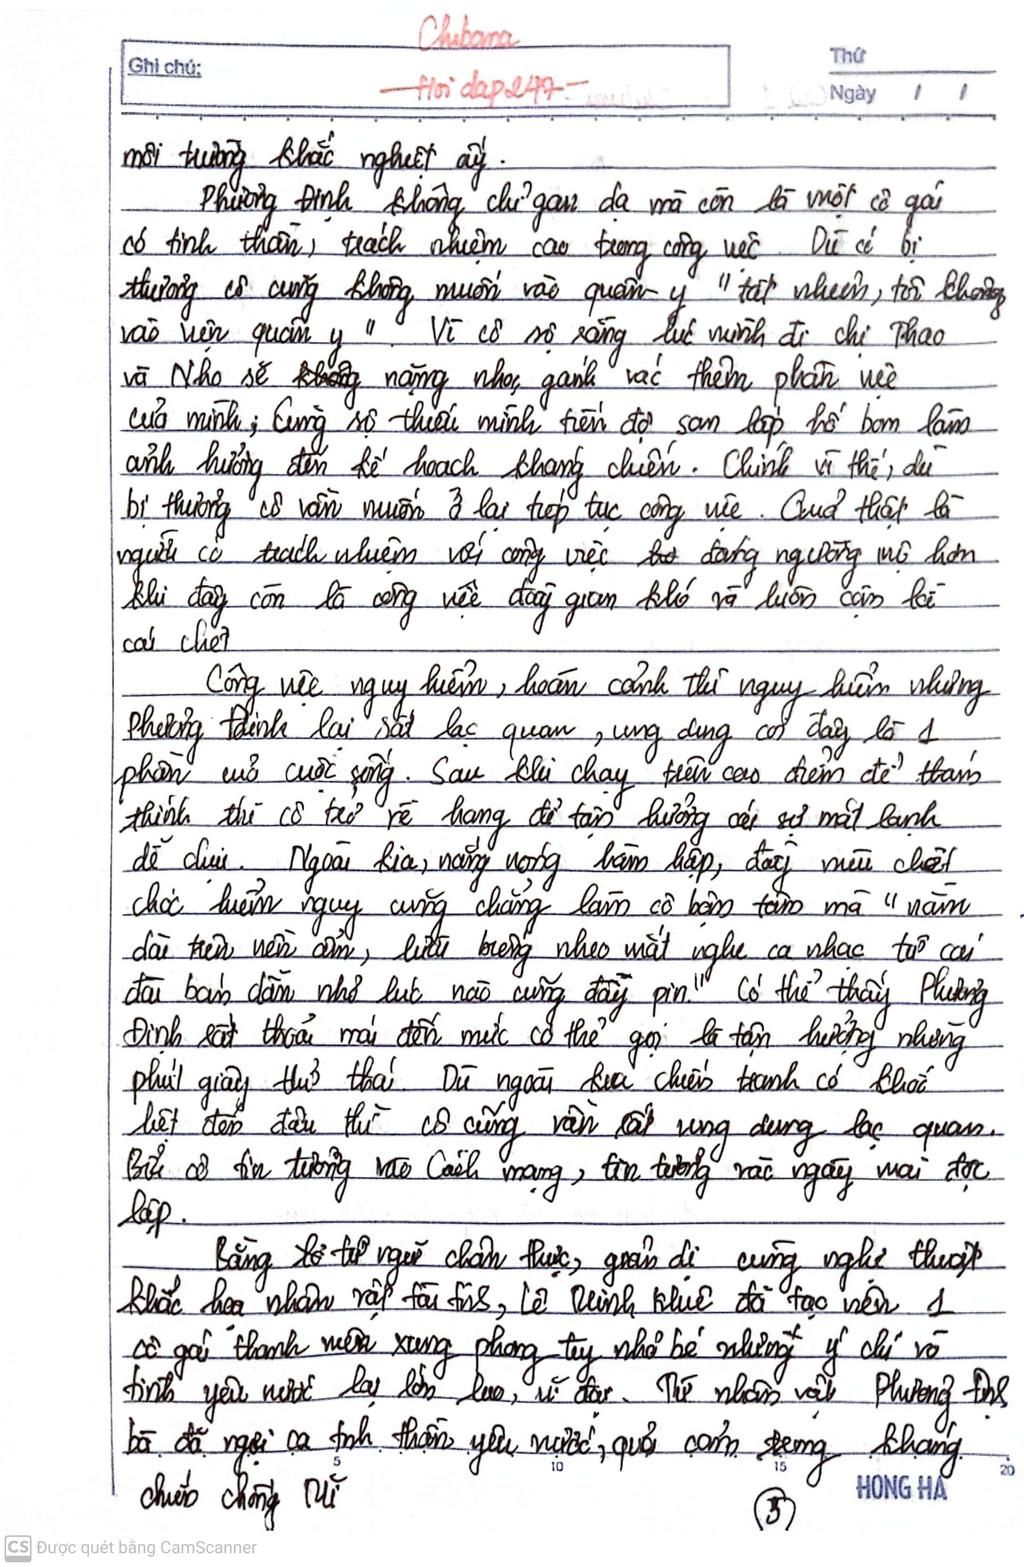 Chibana
Ghi chú:
—Hoi dap247—
Thứ
Ngày / /
môi trường khắc nghiệt ấy.
Phương Định không chỉ gan dạ mà còn là một cô gái
có tinh thần, trách nhiệm cao trong công việc. Dù có bị
thương cô cũng không muốn vào quân y "tất nhiên, tôi không
vào viện quân y". Vì cô sợ rằng lúc mình đi chị Thao
và Nho sẽ không nặng nhọc gánh vác thêm phần việc
của mình; Cũng sợ thiếu mình tiến độ san lấp hố bom làm
ảnh hưởng đến kế hoạch kháng chiến. Chính vì thế, dù
bị thương cô vẫn muốn ở lại tiếp tục công việc. Quả thật là
người có trách nhiệm với công việc đáng ngưỡng mộ hơn
khi đây còn là công việc đầy gian khó và luôn cận kề
cái chết
Công việc nguy hiểm, hoàn cảnh thì nguy hiểm nhưng
Phương Định lại rất lạc quan, ung dung coi đây là 1
phần của cuộc sống. Sau khi chạy trên cao điểm để thám
thính thì cô trở về hang để tận hưởng cái sự mát lạnh
dễ chịu. Ngoài kia, nắng nóng hầm hập, đầy mùi chết
chóc hiểm nguy cũng chẳng làm cô bận tâm mà "nằm
dài trên nền ẩm, lười biếng nheo mắt nghe ca nhạc từ cái
đài bán dẫn nhỏ lúc nào cũng đầy pin." Có thể thấy Phương
Định rất thoải mái đến mức có thể gọi là tận hưởng những
phút giây thư thái. Dù ngoài kia chiến tranh có khốc
liệt đến đâu thì cô cũng vẫn rất ung dung lạc quan.
Bởi cô tin tưởng vào Cách mạng, tin tưởng vào ngày mai độc
lập.
Bằng từ ngữ chân thực, giản dị cùng nghệ thuật
khắc họa nhân vật tài tình, Lê Minh Khuê đã tạo nên 1
cô gái thanh niên xung phong tuy nhỏ bé nhưng ý chí và
tình yêu nước lại lớn lao, vĩ đại. Từ nhân vật Phương Định
bà đã ngợi ca tinh thần yêu nước, quả cảm trong kháng
chiến chống Mĩ
5
10
15
20
HONG HA
5
CS Được quét bằng CamScanner